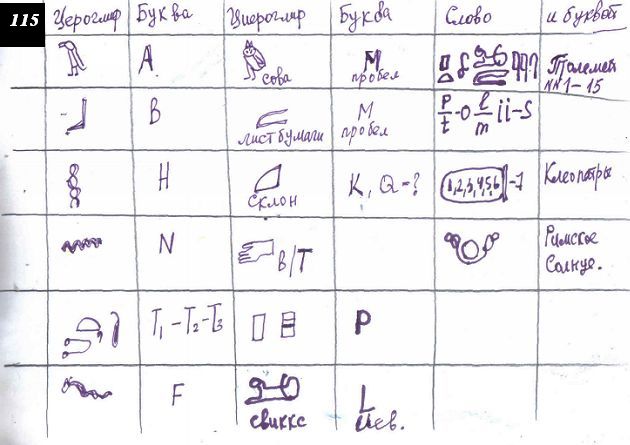 115
Иероглиф Буква Циероглиф Буква Слово и буквой
A. сова M пробел Птолемей №№1-15
B лист бумаги M пробел P/t-o l/m ii-s
H Склон K, Q-? 1,2,3,4,5,6 -7 Клеопатры
N B/T Римское Солнце.
T1-T2-T3 P
F свиккс L